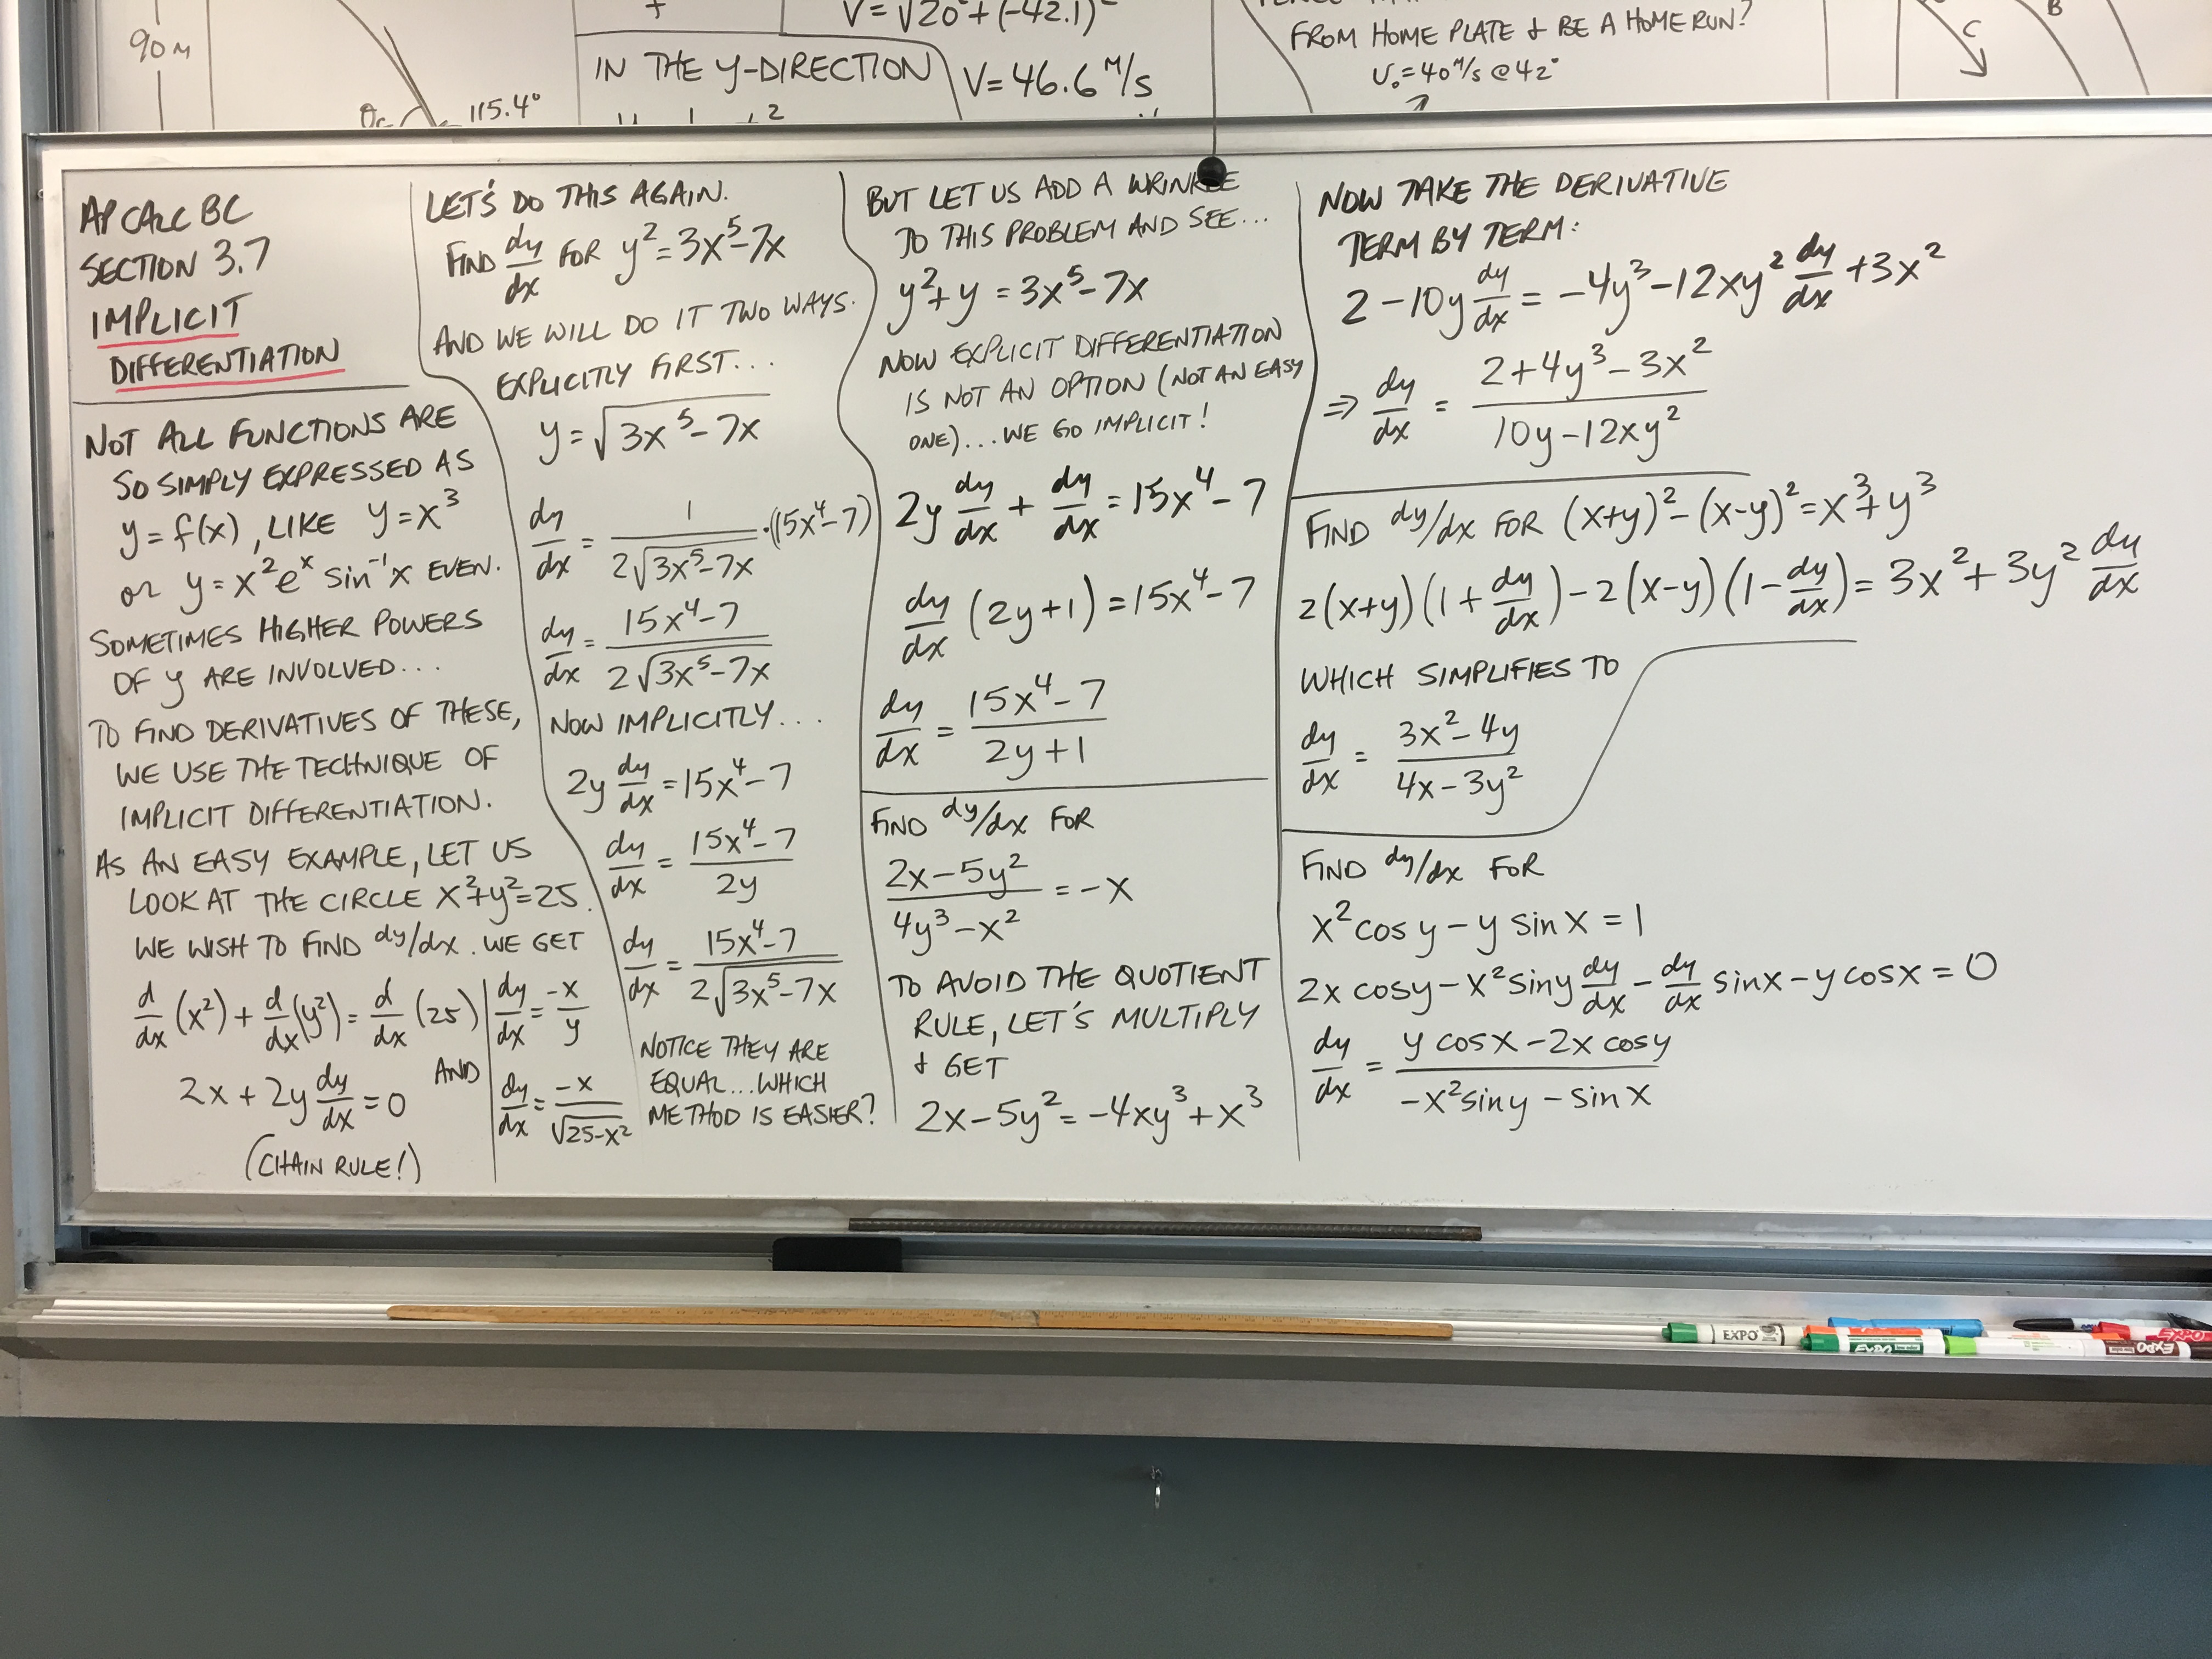 90 M
115.4°
V = √20² + (-42.1)²
IN THE Y-DIRECTION
V = 46.6 M/S
FROM HOME PLATE & BE A HOME RUN?
V₀ = 40 M/S @ 42°
C
B
AP CALC BC
SECTION 3.7
IMPLICIT
DIFFERENTIATION
NOT ALL FUNCTIONS ARE
SO SIMPLY EXPRESSED AS
y = f(x), LIKE y = x³
or y = x²eˣ sin⁻¹x EVEN.
SOMETIMES HIGHER POWERS
OF y ARE INVOLVED...
TO FIND DERIVATIVES OF THESE,
WE USE THE TECHNIQUE OF
IMPLICIT DIFFERENTIATION.
AS AN EASY EXAMPLE, LET US
LOOK AT THE CIRCLE x²+y²=25.
WE WISH TO FIND dy/dx. WE GET
d/dx (x²) + d/dx (y²) = d/dx (25)
2x + 2y dy/dx = 0
(CHAIN RULE!)
AND
dy/dx = -x/y
dy/dx = -x/√25-x²
LET'S DO THIS AGAIN.
FIND dy/dx FOR y² = 3x⁵-7x
AND WE WILL DO IT TWO WAYS.
EXPLICITLY FIRST...
y = √3x⁵-7x
dy/dx = 1/2√3x⁵-7x · (15x⁴-7)
dy/dx = 15x⁴-7/2√3x⁵-7x
NOW IMPLICITLY...
2y dy/dx = 15x⁴-7
dy/dx = 15x⁴-7/2y
dy/dx = 15x⁴-7/2√3x⁵-7x
NOTICE THEY ARE
EQUAL...WHICH
METHOD IS EASIER?
BUT LET US ADD A WRINKLE
TO THIS PROBLEM AND SEE...
y²+y = 3x⁵-7x
NOW EXPLICIT DIFFERENTIATION
IS NOT AN OPTION (NOT AN EASY
ONE)...WE GO IMPLICIT!
2y dy/dx + dy/dx = 15x⁴-7
dy/dx (2y+1) = 15x⁴-7
dy/dx = 15x⁴-7/2y+1
FIND dy/dx FOR
2x-5y²/4y³-x² = -x
TO AVOID THE QUOTIENT
RULE, LET'S MULTIPLY
& GET
2x-5y² = -4xy³+x³
NOW TAKE THE DERIVATIVE
TERM BY TERM:
2-10y dy/dx = -4y³-12xy² dy/dx +3x²
⇒ dy/dx = 2+4y³-3x²/10y-12xy²
FIND dy/dx FOR (x+y)²-(x-y)²=x³+y³
2(x+y)(1+dy/dx)-2(x-y)(1-dy/dx)=3x²+3y² dy/dx
WHICH SIMPLIFIES TO
dy/dx = 3x²-4y/4x-3y²
FIND dy/dx FOR
x²cosy-y sinx = 1
2x cosy-x²siny dy/dx - dy/dx sinx-y cosx = 0
dy/dx = y cosx-2x cosy/-x²siny-sinx
EXPO
EXPO
EXPO
EXPO